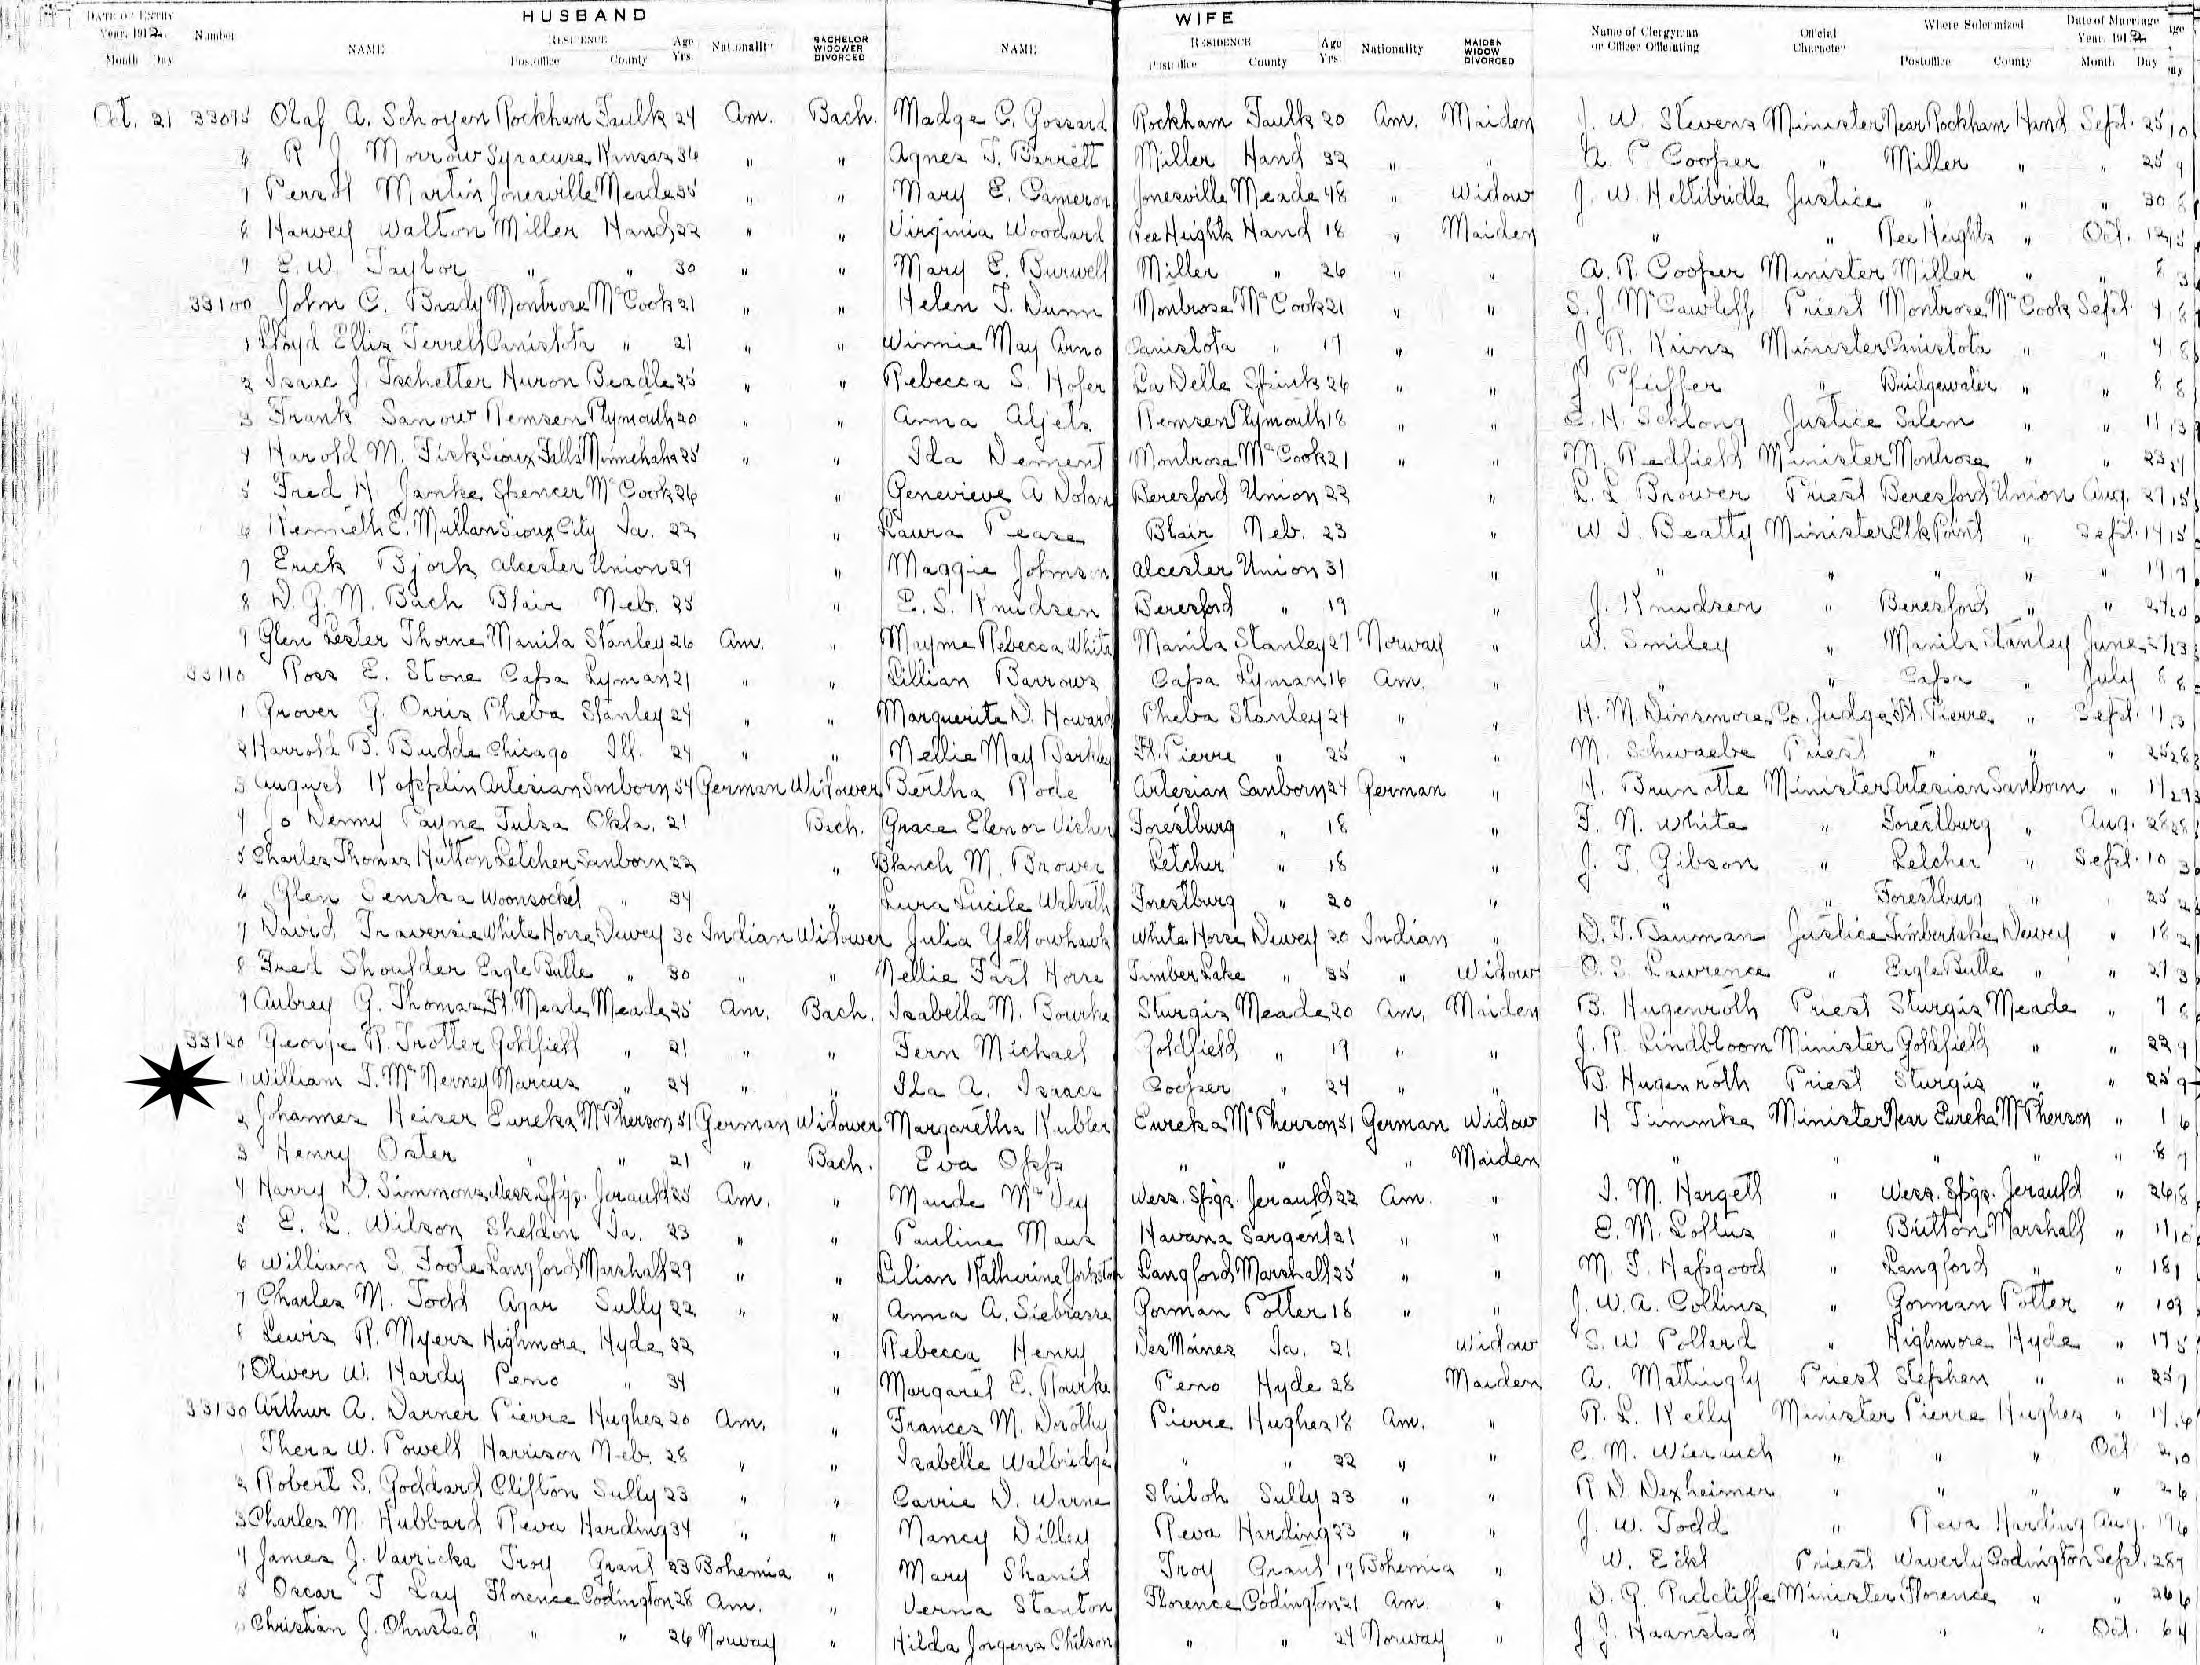 HUSBAND WIFE
DATE OF ENTRY Year, 1912. Month Day Number NAME RESIDENCE Postoffice County Age Yrs. Nationality BACHELOR WIDOWER DIVORCED NAME RESIDENCE Postoffice County Age Yrs. Nationality MAIDEN WIDOW DIVORCED Name of Clergyman or Officer Officiating Official Character Where Solemnized Postoffice County Date of Marriage Year, 1912. Month Day
Oct. 21 33095 Olaf A. Schoyen Rockham Faulk 24 Am. Bach. Madge C. Gossard Rockham Faulk 20 Am. Maiden J. W. Stevens Minister Near Rockham Hand Sept. 25
6 R J Morrow Syracuse Kansas 36 " " Agnes T. Barrett Miller Hand 32 " " A. P Cooper " Miller " " 25
7 Martin Jonesville Meade 35 " " Mary E. Cameron Jonesville Meade 48 " Widow J. W. Heltibridle Justice " " " 30
8 Harvey Walton Miller Hand 22 " " Virginia Woodard Ree Heights Hand 18 " Maiden " " Ree Heights " Oct. 12
9 E. W. Taylor " " 30 " " Mary E. Burwell Miller " 26 " " A. P. Cooper Minister Miller " " 8
33100 John C. Brady Montrose McCook 21 " " Helen T. Dunn Montrose McCook 21 " " S. J. McCawliff Priest Montrose McCook Sept. 4
1 Lloyd Ellis Terrell Canistota " 21 " " Winnie May Arno Canistota " 19 " " J R. Minister Canistota " " 4
2 Isaac J. Tschetter Huron Beadle 25 " " Rebecca S. Hofer La Delle Spink 26 " " J Pfeiffer " Bridgewater " " 8
3 Frank Sanow Remsen Plymouth 20 " " Anna Aljets Remsen Plymouth 18 " " E. H. Schlong Justice Salem " " 11
4 Harold M. Fisk Sioux Falls Minnehaha 25 " " Ida Dement Montrose McCook 21 " " M. Redfield Minister Montrose " " 23
5 Fred H Janke Spencer McCook 26 " Genevieve A Dolan Beresford Union 22 " L. L Brower Priest Beresford Union Aug. 27
6 Kenneth E. Mullan Sioux City Ia. 22 " Laura Pease Blair Neb. 23 " W I. Beatty Minister Elk Point " Sept. 14
7 Erick Bjork Alcester Union 29 " Maggie Johnson Alcester Union 31 " " " " " " 19
8 D. G. M. Bach Blair Neb. 25 " E. S. Knudsen Beresford " 19 " J. Knudsen " Beresford " " 24
9 Glen Lester Thorne Manila Stanley 26 Am. " Mayme Rebecca White Manila Stanley 27 Norway " W. Smiley " Manila Stanley June
33110 Ross E. Stone Capa Lyman 21 " " Lillian Barrows Capa Lyman 16 Am. " " " Capa " July 8
1 Grover G. Orris Pheba Stanley 24 " " Marguerite D. Howard Pheba Stanley 24 " " H. M. Dinsmore Co. Judge Ft. Pierre " Sept. 11
2 Harrold B. Budde Chicago Ill. 24 " " Nellie May Barkley Ft. Pierre " 25 " " M. Schwaebe Priest " " " 25
3 August Kopplin Artesian Sanborn 54 German Widower Bertha Rode Artesian Sanborn 24 German " H. Brunotte Minister Artesian Sanborn " 11
4 Jo Denny Payne Tulsa Okla. 21 Bach. Grace Elenor Visher Forestburg " 18 " F. N. White " Forestburg " Aug. 28
5 Charles Thomas Hutton Letcher Sanborn 22 " Blanch M. Brower Letcher " 18 " J. T. Gibson " Letcher " Sept. 10
6 Glen Senska Woonsocket " 34 " Lura Lucile Walrath Forestburg " 20 " " " Forestburg " " 25
7 David Traversie White Horse Dewey 30 Indian Widower Julia Yellowhawk White Horse Dewey 20 Indian " D. T. Bauman Justice Timberlake Dewey " 18
8 Fred Shoulder Eagle Butte " 30 " " Nellie Fast Horse Timber Lake " 35 " Widow O. S. Lawrence " Eagle Butte " " 21
9 Aubrey G. Thomas Ft. Meade Meade 25 Am. Bach. Isabella M. Bourke Sturgis Meade 20 Am. Maiden B. Hugenroth Priest Sturgis Meade " 7
33120 George R. Trotter Goldfield " 21 " " Fern Michael Goldfield " 19 " " J. P. Lindbloom Minister Goldfield " " 22
1 William T. McNerney Marcus " 24 " " Ida A. Isaacs Cooper " 24 " " B. Hugenroth Priest Sturgis " " 25
2 Johannes Heiser Eureka McPherson 51 German Widower Margaretha Kubler Eureka McPherson 51 German Widow H Timmke Minister Near Eureka McPherson " 1
3 Henry Oster " " 21 " Bach. Eva Opp " " " Maiden " " " " " 8
4 Harry D. Simmons Wess. Spgs. Jerauld 25 Am. " Maude McVey Wess. Spgs. Jerauld 22 Am. " I. M. Hargett " Wess. Spgs. Jerauld " 26
5 E. L. Wilson Sheldon Ia. 23 " " Pauline Maus Havana Sargent 21 " " E. M. Loftus " Britton Marshall " 11
6 William S. Foote Langford Marshall 29 " " Lilian Katherine Yorkston Langford Marshall 25 " " M. T. Hapgood " Langford " " 18
7 Charles M. Todd Agar Sully 22 " " Anna A. Siebrasse Gorman Potter 18 " " J. W. A. Collins " Gorman Potter " 10
8 Lewis R. Myers Highmore Hyde 22 " Rebecca Henry Des Moines Ia. 21 Widow S. W Pollard " Highmore Hyde " 17
9 Oliver W. Hardy Peno " 34 " Margaret E. Rourke Peno Hyde 28 Maiden A. Mattingly Priest Stephan " " 25
33130 Arthur A. Darner Pierre Hughes 20 Am. " Frances M. Dorothy Pierre Hughes 18 Am. " R. L. Kelly Minister Pierre Hughes " 14
1 Thera W. Powell Harrison Neb. 28 " " Isabelle Walbridge " " 22 " " C. M. Wierauch " " " Oct 2
2 Robert S. Goddard Clifton Sully 23 " " Carrie D. Warne Shiloh Sully 23 " " R D. Dexheimer " " " " 2
3 Charles M. Hubbard Reva Harding 34 " " Nancy Dilley Reva Harding 23 " " J. W. Todd " Reva Harding Aug. 19
4 James J. Vavricka Troy Grant 23 Bohemia " Mary Shanil Troy Grant 19 Bohemia " W. Eikl Priest Waverly Codington Sept. 28
5 Oscar T Lay Florence Codington 28 Am. " Verna Stanton Florence Codington 21 Am. " D. G. Radcliffe Minister Florence " " 26
6 Christian J. Ohnstad " " 26 Norway " Hilda Jorgens Chilson " " 24 Norway " J. J. Haanstad " " " Oct. 6